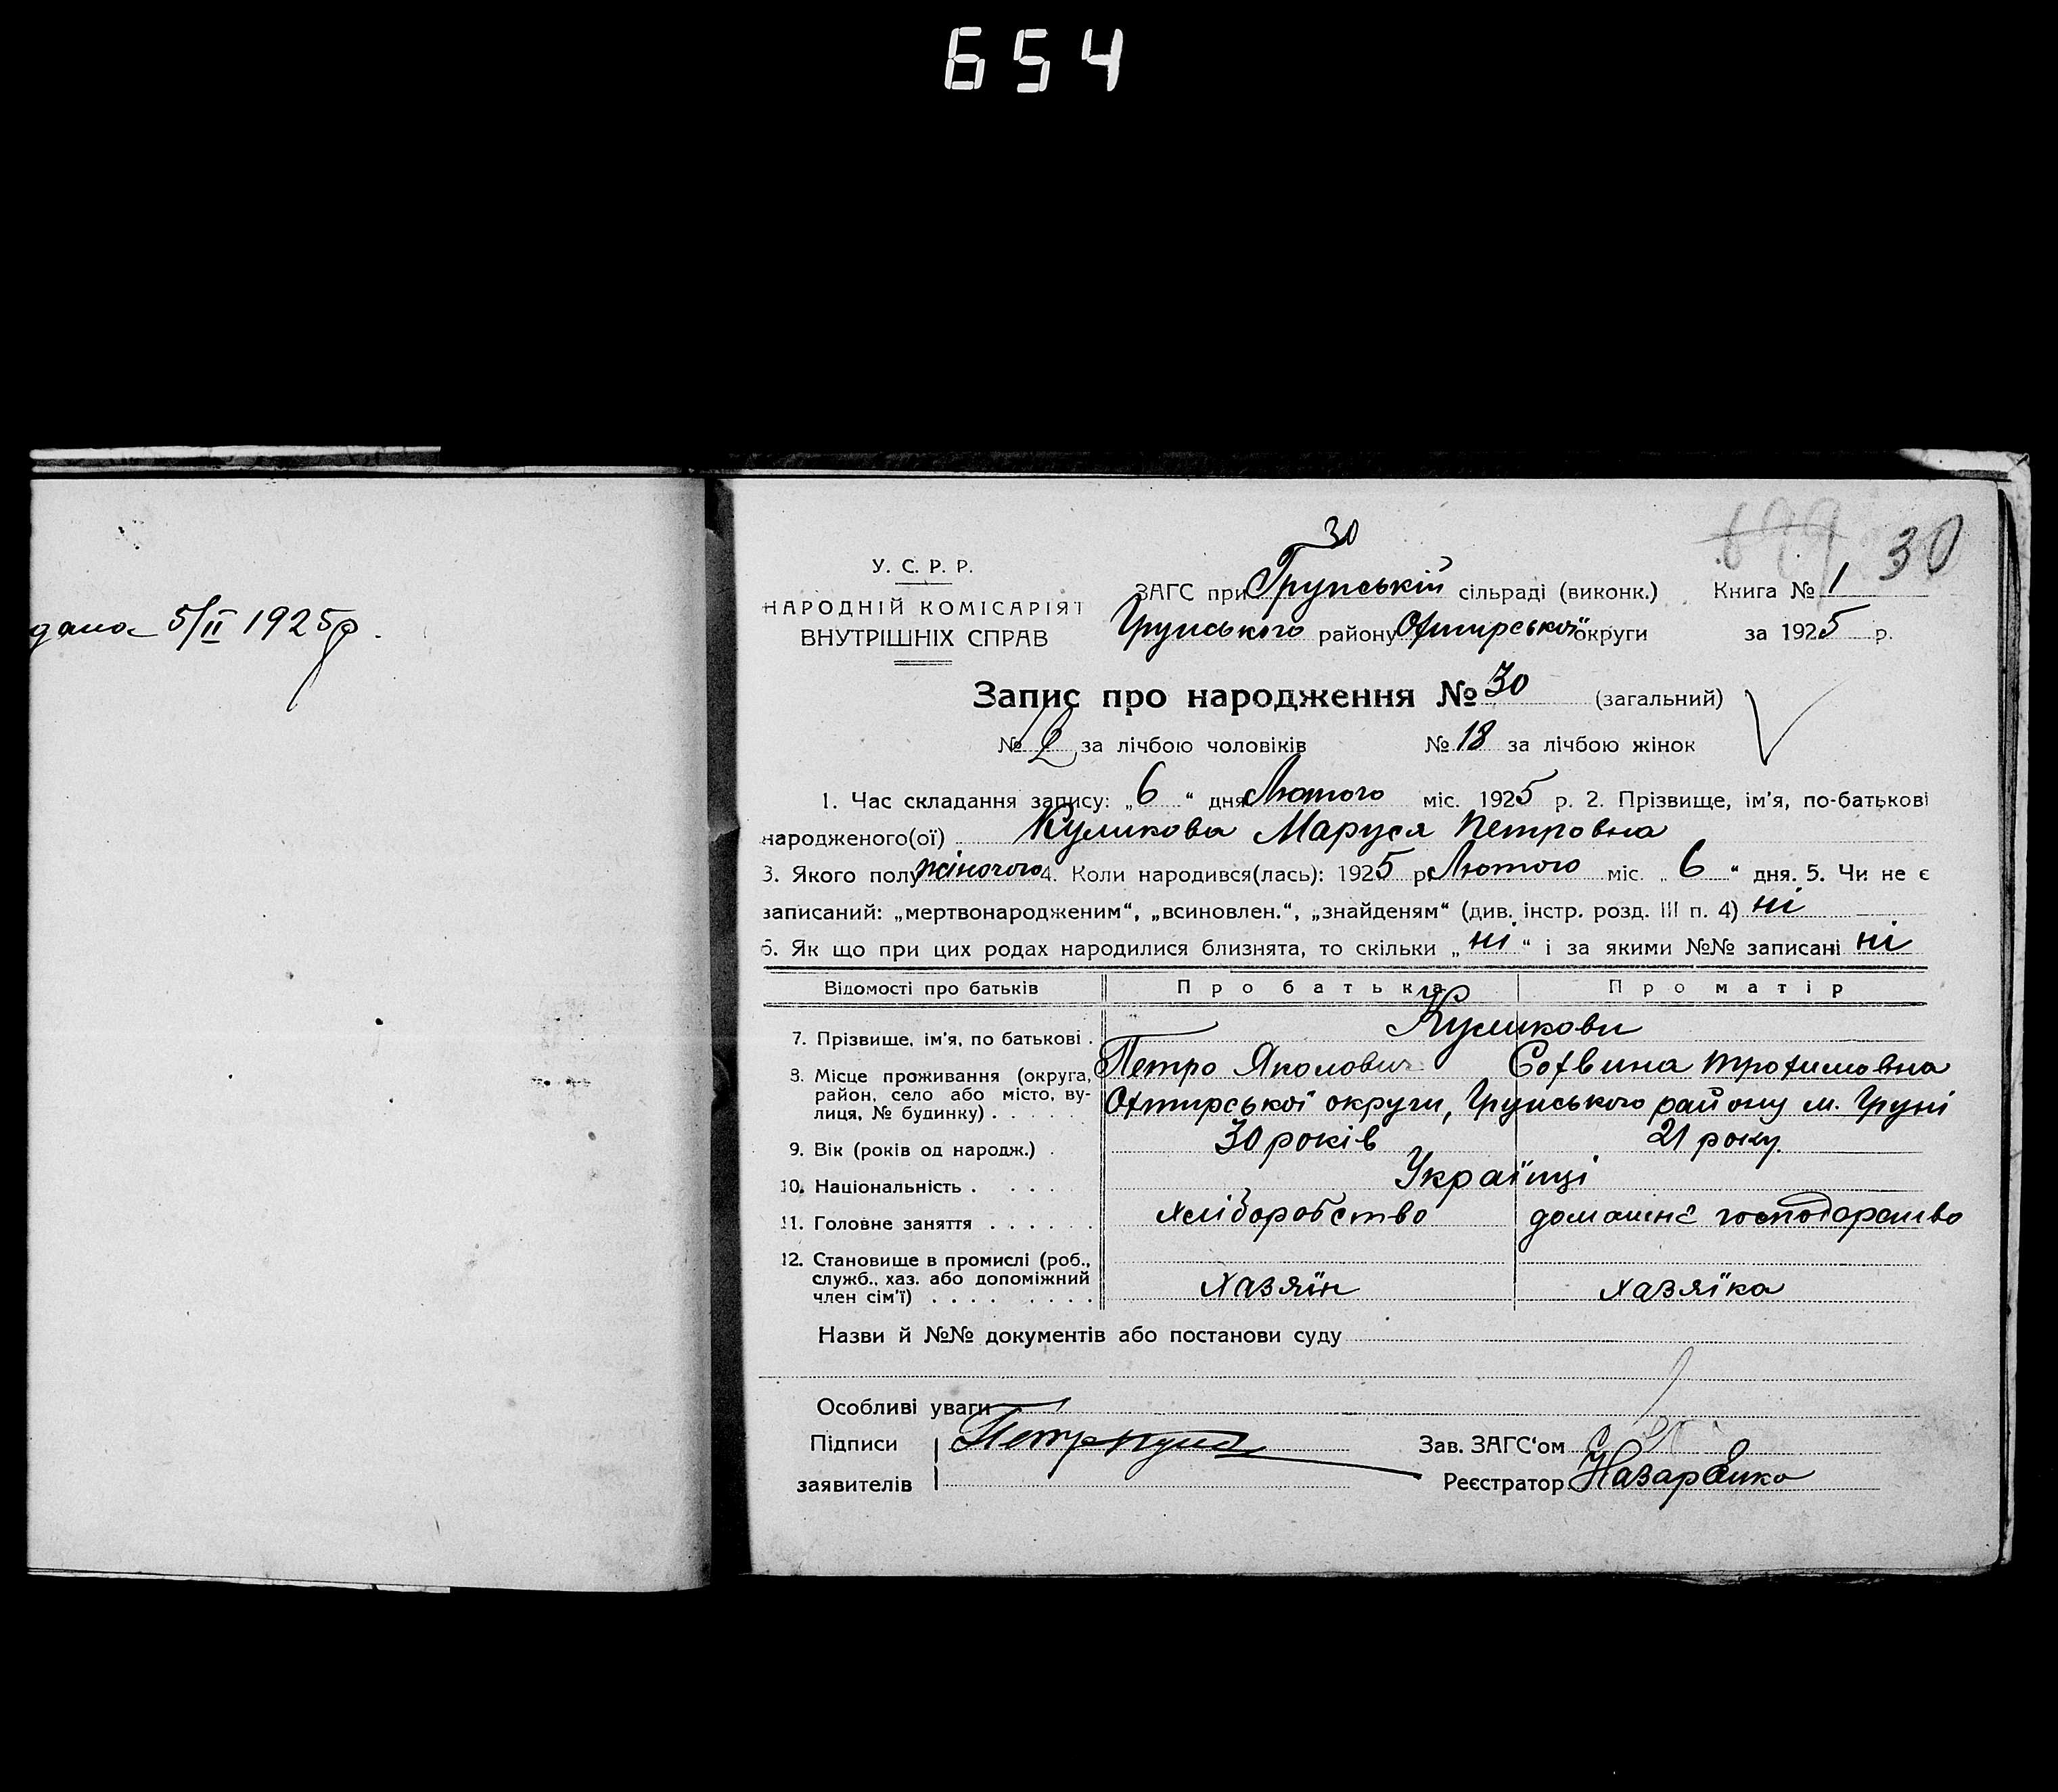 654
дана 5/II 1925р.
30
30
У. С. Р. Р.
НАРОДНІЙ КОМІСАРІЯТ
ВНУТРІШНІХ СПРАВ
ЗАГС при Грунській сільраді (виконк.) Книга № 1
Грунського району Охтирської округи за 1925 р.
Запис про народження № 30 (загальний)
№ за лічбою чоловіків № 18 за лічбою жінок
1. Час складання запису: „6“ дня Лютого міс. 1925 р. 2. Прізвище, ім'я, по-батькові
народженого(ої) Куликова Маруся Петровна
3. Якого полу жіночого 4. Коли народився(лась): 1925 р. Лютого міс. „6“ дня. 5. Чи не є
записаний: „мертвонародженим“, „всиновлен.“, „знайденям“ (див. інстр. розд. III п. 4) ні
6. Як що при цих родах народилися близнята, то скільки „ні“ і за якими №№ записані ні
Відомості про батьків Про батька Про матір
7. Прізвище, ім'я, по батькові . Куликови
Петро Яколович Трохимовна
8. Місце проживання (округа,
район, село або місто, ву-
лиця, № будинку) . . . . . Охтирської округи, Грунського району м. Груні
9. Вік (років од народж.) . 30 років 21 року.
10. Національність . . . . Українці
11. Головне заняття . . . . . . хліборобство домашнє господарство
12. Становище в промислі (роб.,
служб., хаз. або допоміжний
член сім'ї) . . . . . . . . хазяїн хазяїка
Назви й №№ документів або постанови суду
Особливі уваги
Підписи Зав. ЗАГС'ом
заявителів Реєстратор Назаренко